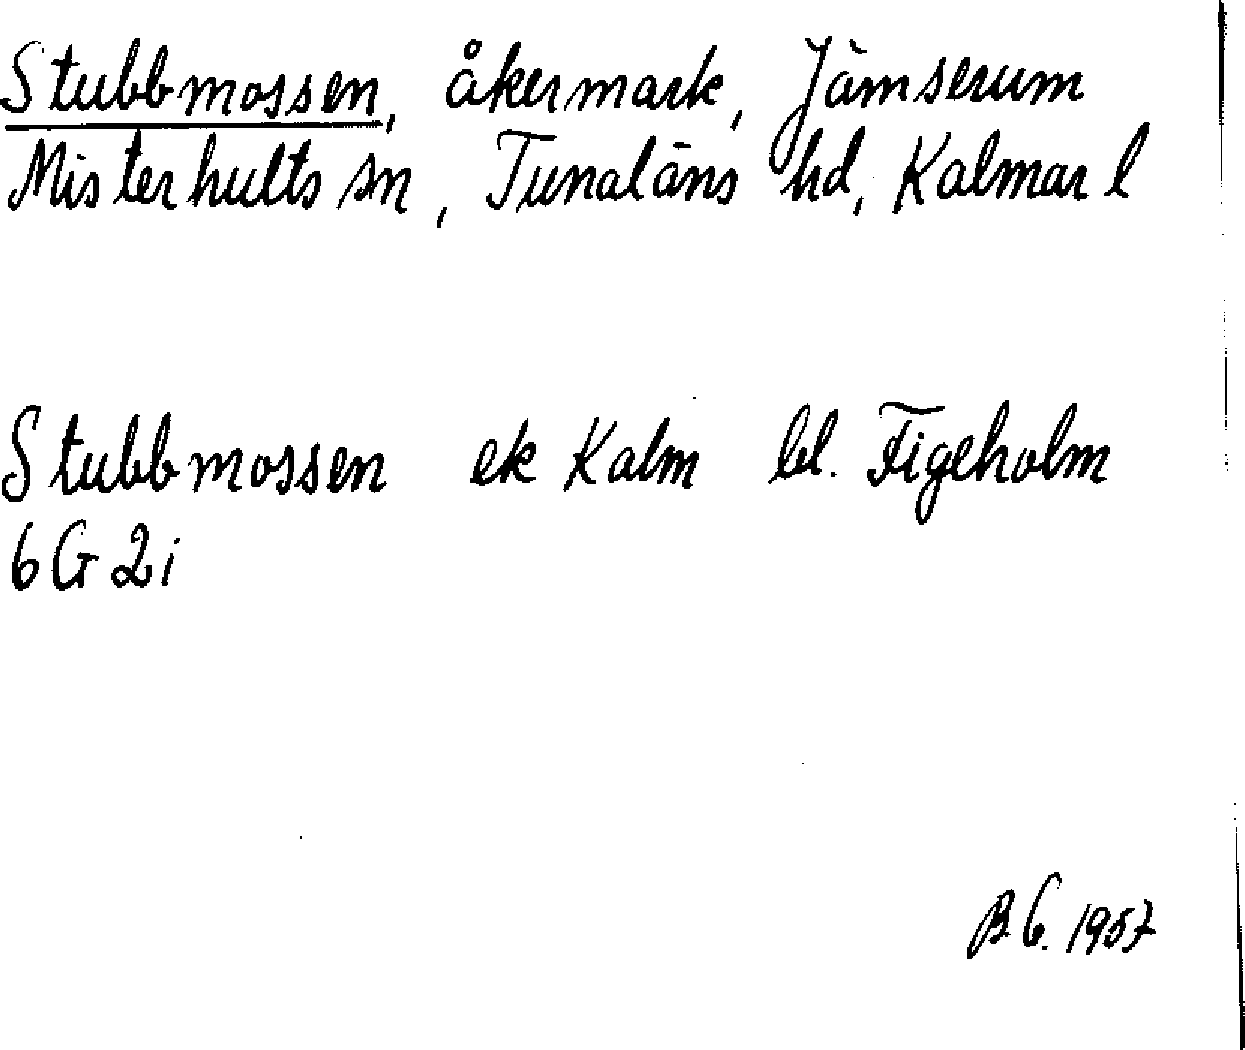 Stubbmossen, åkermark, Jämserum
Misterhults sn, Tunaläns hd, Kalmar l
Stubbmossen ek Kalm bl. Figeholm
6 G 2 i
B G. 1957